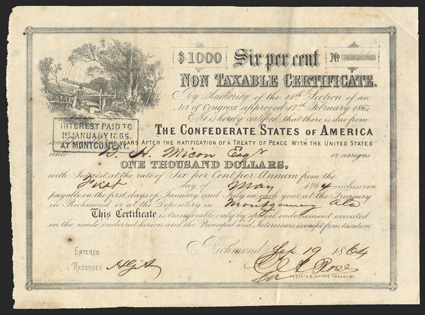 $1000 Six per cent No
NON TAXABLE CERTIFICATE.
By Authority of the 14th Section of an
Act of Congress approved 17th February 1864
It is hereby certified that there is due from
THE CONFEDERATE STATES OF AMERICA
INTEREST PAID TO
1st JANUARY 1865.
AT MONTGOMERY
YEARS AFTER THE RATIFICATION OF A TREATY OF PEACE WITH THE UNITED STATES
unto B. H. Micon Esqr or assigns
ONE THOUSAND DOLLARS,
with Interest at the rate of Six per Cent per Annum from the
First day of May 1864 inclusive
payable on the first days of January and July in each year at the Treasury
in Richmond or at the Depository in Montgomery Ala
This Certificate is transferable only by special endorsement executed
in the mode endorsed hereon and the Principal and Interest are exempt from taxation.
Richmond Sep 19 1864
ENTERED
RECORDED
Rose
REGISTER OF THE TREASURY